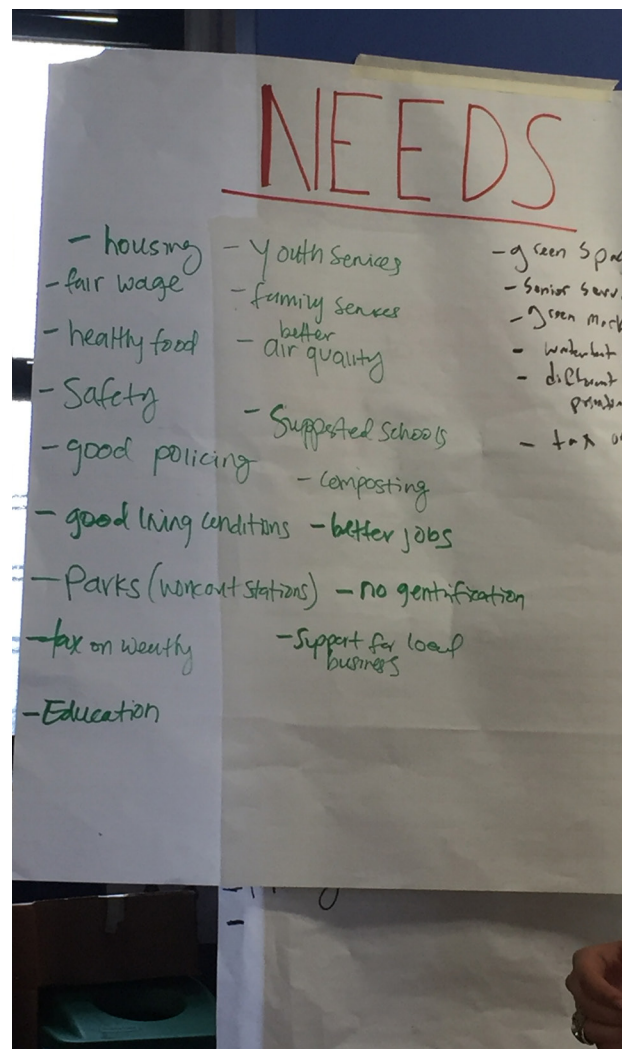 NEEDS
- housing
- fair wage
- healthy food
- Safety
- good policing
- good living conditions
- Parks (workout stations)
- tax on wealthy
- Education
- Youth Services
- family services
better
- air quality
- Suppoted Schools
- composting
- better jobs
- no gentrification
- Support for local
business
- green Spa
- Senior Serv
- green mark
-
- different
- tax